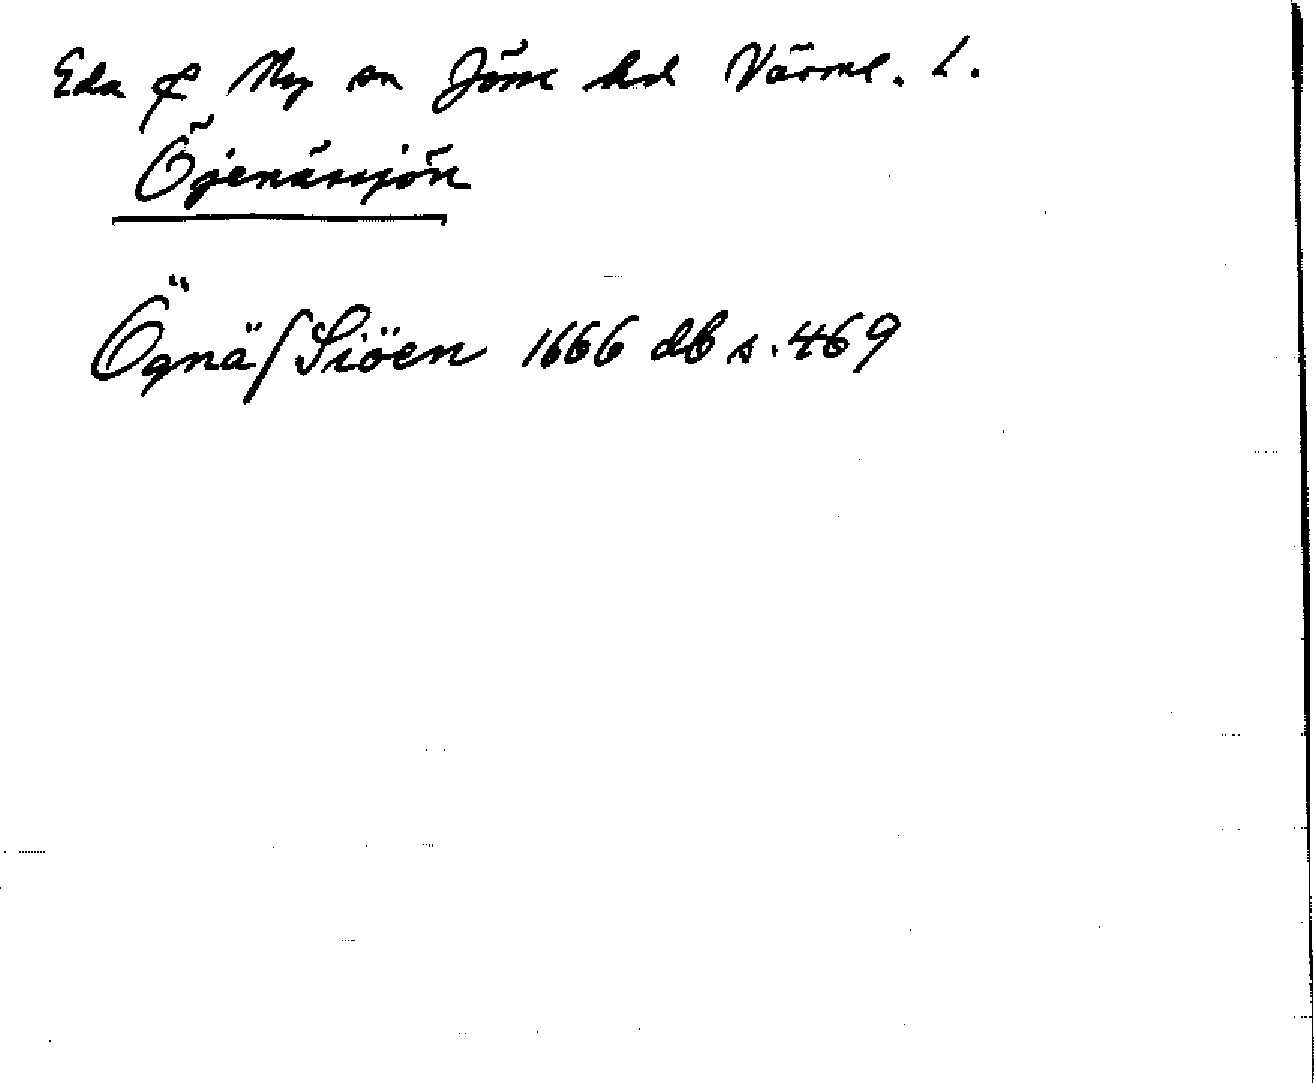 Eda & Ny sn Jösse hd Värml. L.
Öjenässjön
Ögnäſ Siöen 1666 db s. 469